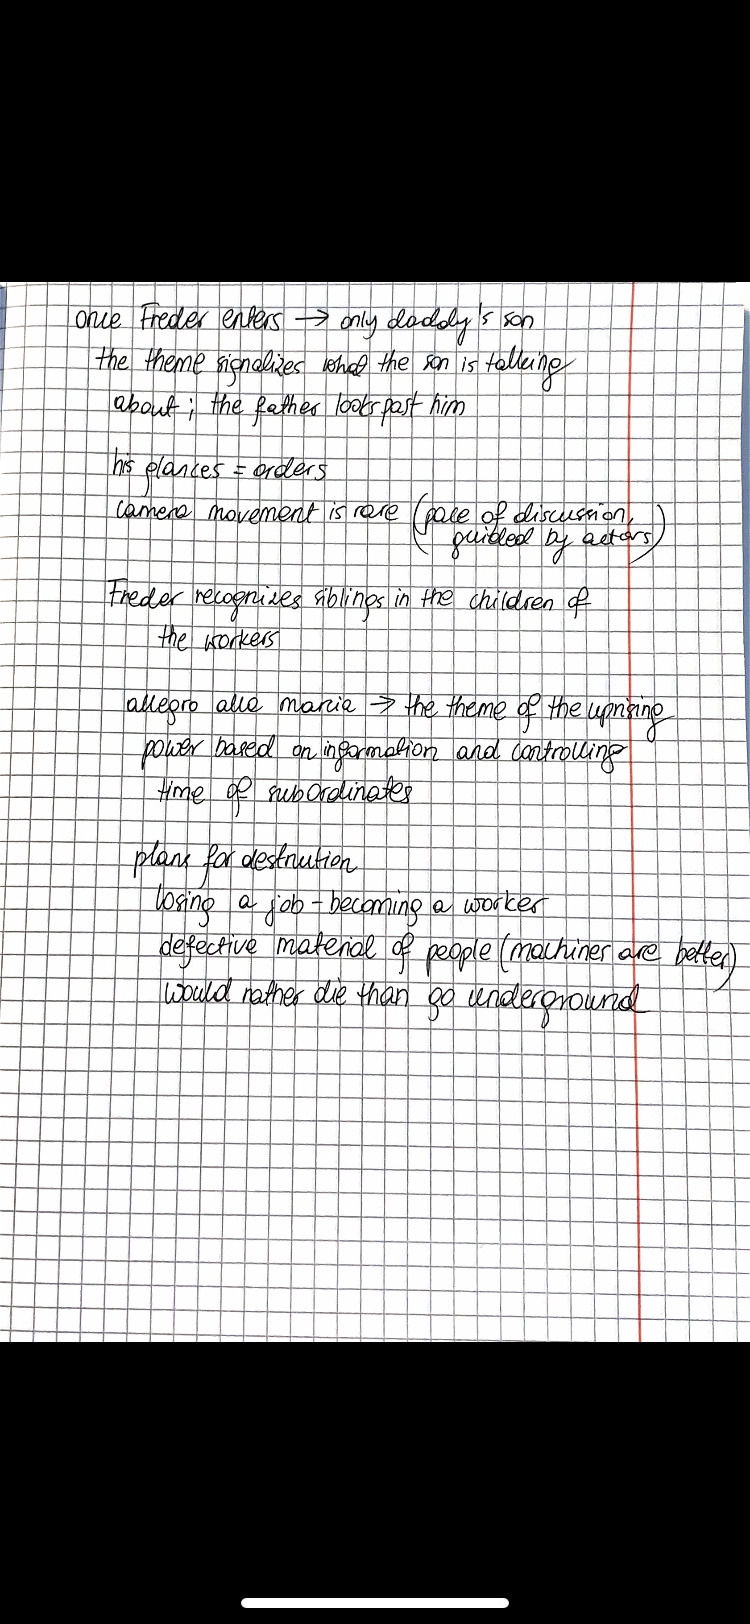 once Freder enters → only daddy's son
the theme signalizes what the son is talking
about; the father looks past him
his glances = orders
camera movement is rare (pace of discussion,
guided by actors)
Freder recognizes siblings in the children of
the workers
allegro alla marcia → the theme of the uprising
power based on information and controlling
time of subordinates
plans for destruction
losing a job - becoming a worker
defective material of people (machines are better)
would rather die than go underground